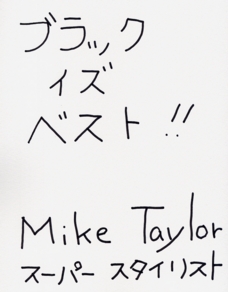 ブラック
イズ
ベスト!!
Mike Taylor
スーパー スタイリスト